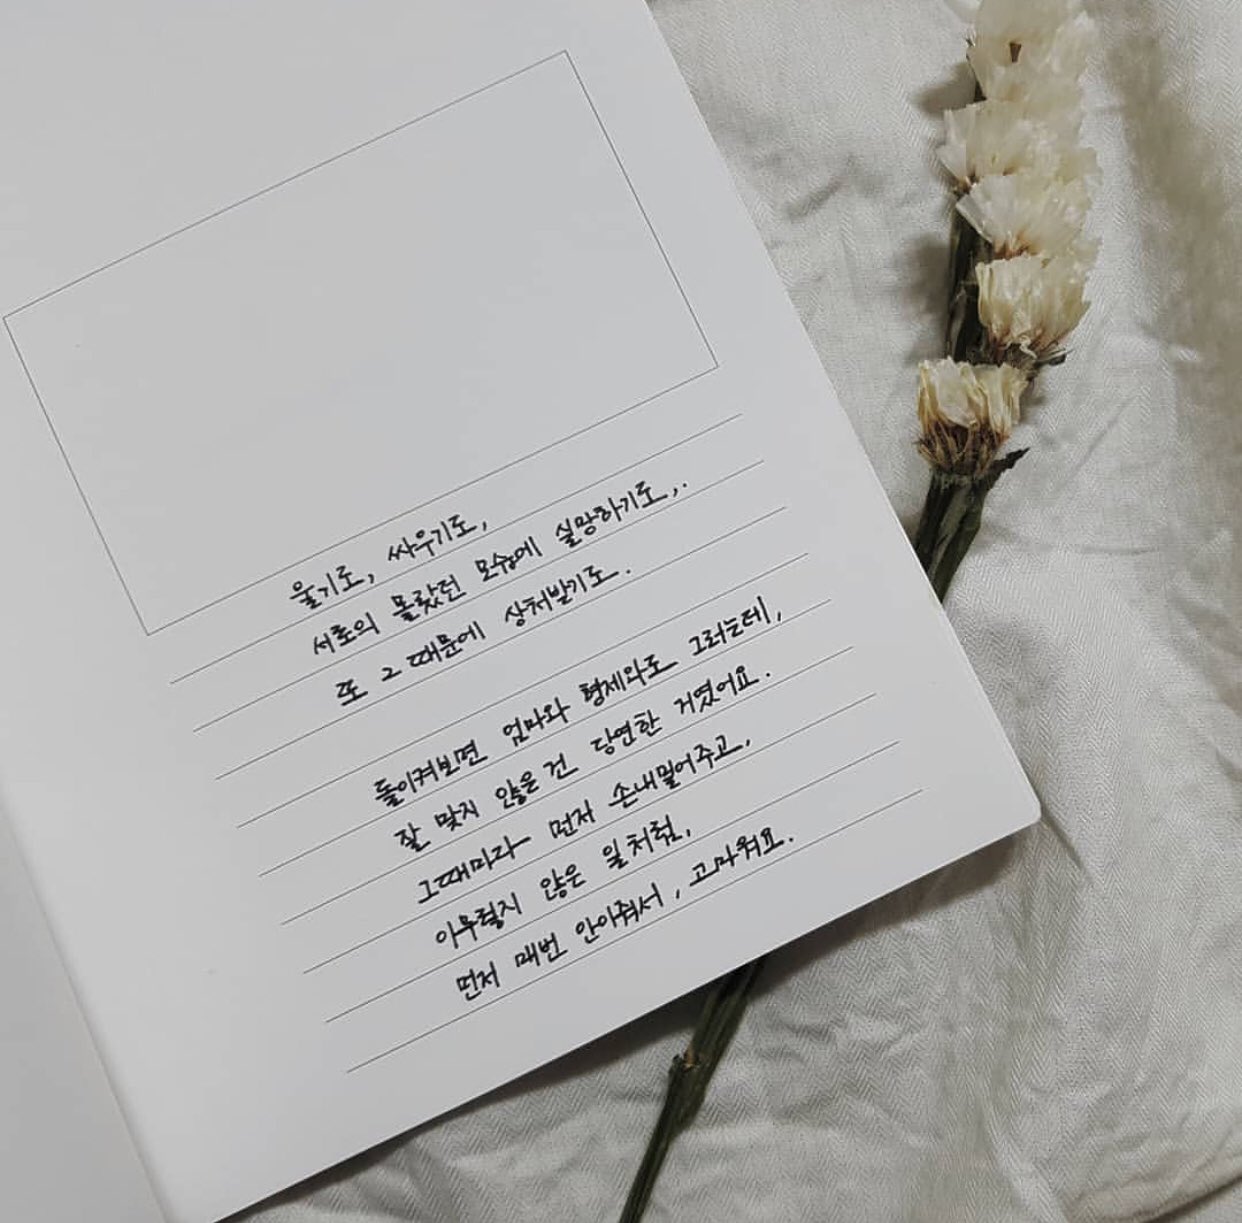 울기도, 싸우기도,
서로의 몰랐던 모습에 실망하기도,.
또 그 때문에 상처받기도.
돌이켜보면 엄마와 형제와도 그러는데,
잘 맞지 않은 건 당연한 거였어요.
그때마다 먼저 손내밀어주고,
아무렇지 않은 일처럼,
먼저 매번 안아줘서, 고마워요.